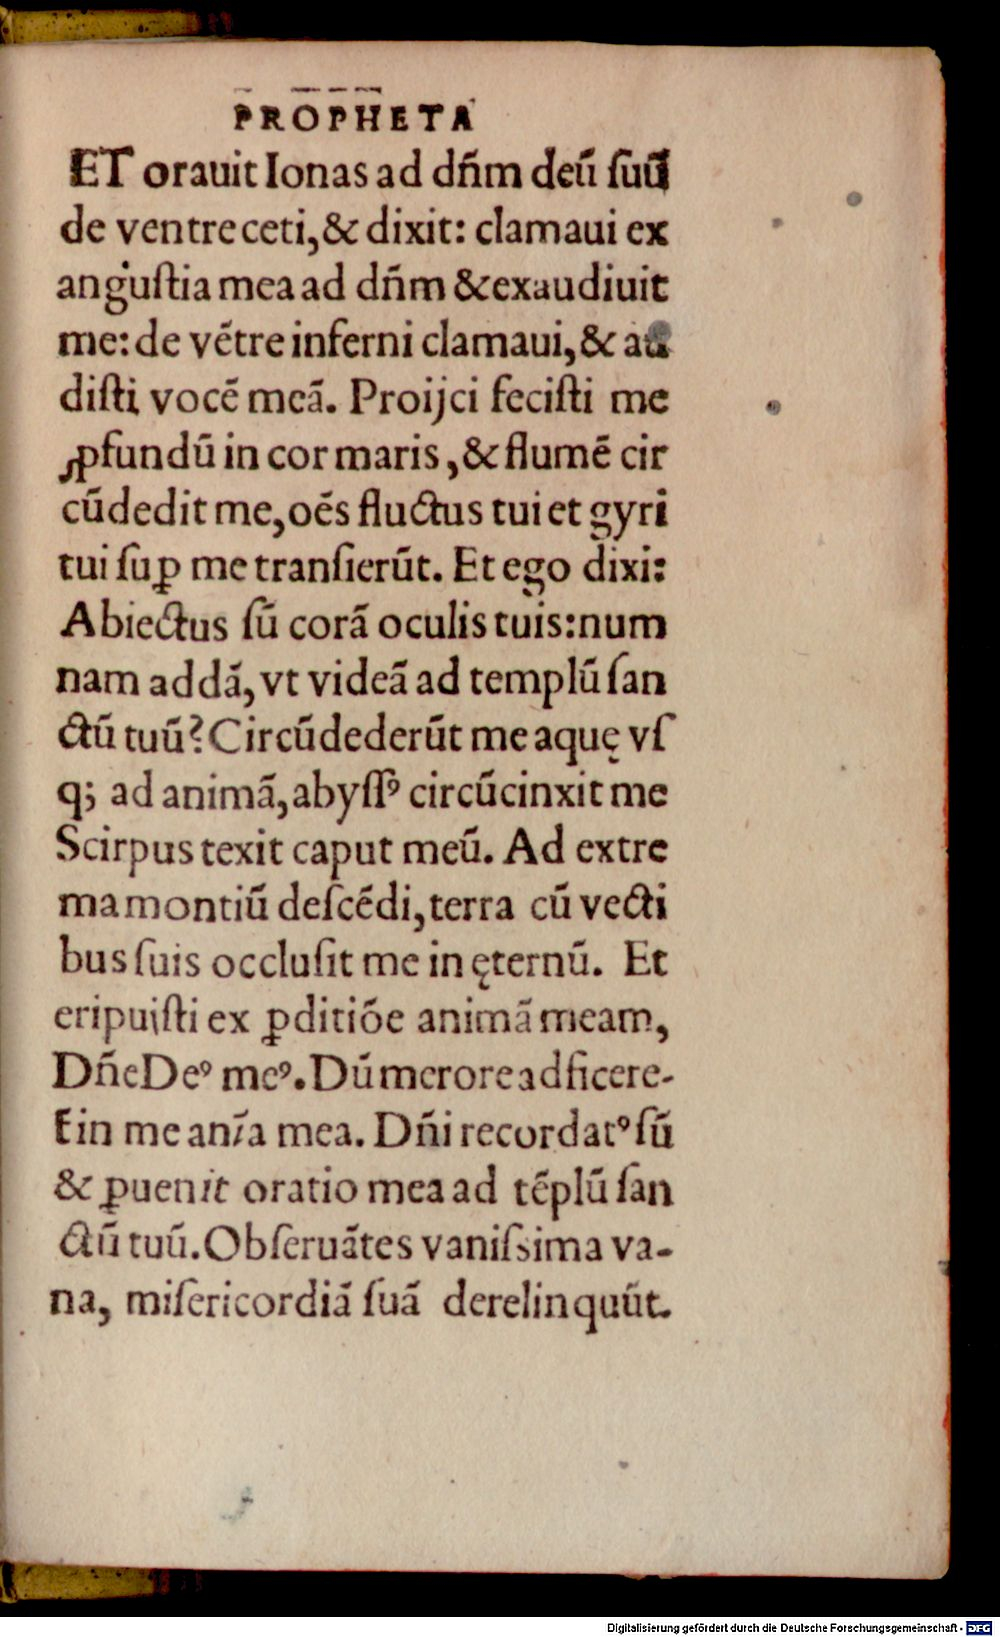 PROPHETA
ET orauit Ionas ad dñm deũ ſuũ
de ventre ceti, & dixit: clamaui ex
anguſtia mea ad dñm & exaudiuit
me: de vẽtre inferni clamaui, & au
diſti vocẽ meã. Proijci feciſti me
ꝓfundũ in cor maris, & flumẽ cir
cũdedit me, oẽs fluctus tui et gyri
tui ſuꝑ me tranſierũt. Et ego dixi:
Abiectus ſũ corã oculis tuis: num
nam addã, vt videã ad templũ ſan
ctũ tuũ? Circũdederũt me aquę vſ
q; ad animã, abyſſꝰ circũcinxit me
Scirpus texit caput meũ. Ad extre
ma montiũ deſcẽdi, terra cũ vecti
bus ſuis occluſit me in ęternũ. Et
eripuiſti ex ꝑditiõe animã meam,
Dñe Deꝰ meꝰ. Dũ merore adficere-
t in me aĩa mea. Dñi recordatꝰ ſũ
& ꝑuenit oratio mea ad tẽplũ ſan
ctũ tuũ. Obſeruãtes vaniſsima va-
na, miſericordiã ſuã derelinquũt.
Digitalisierung gefördert durch die Deutsche Forschungsgemeinschaft - DFG